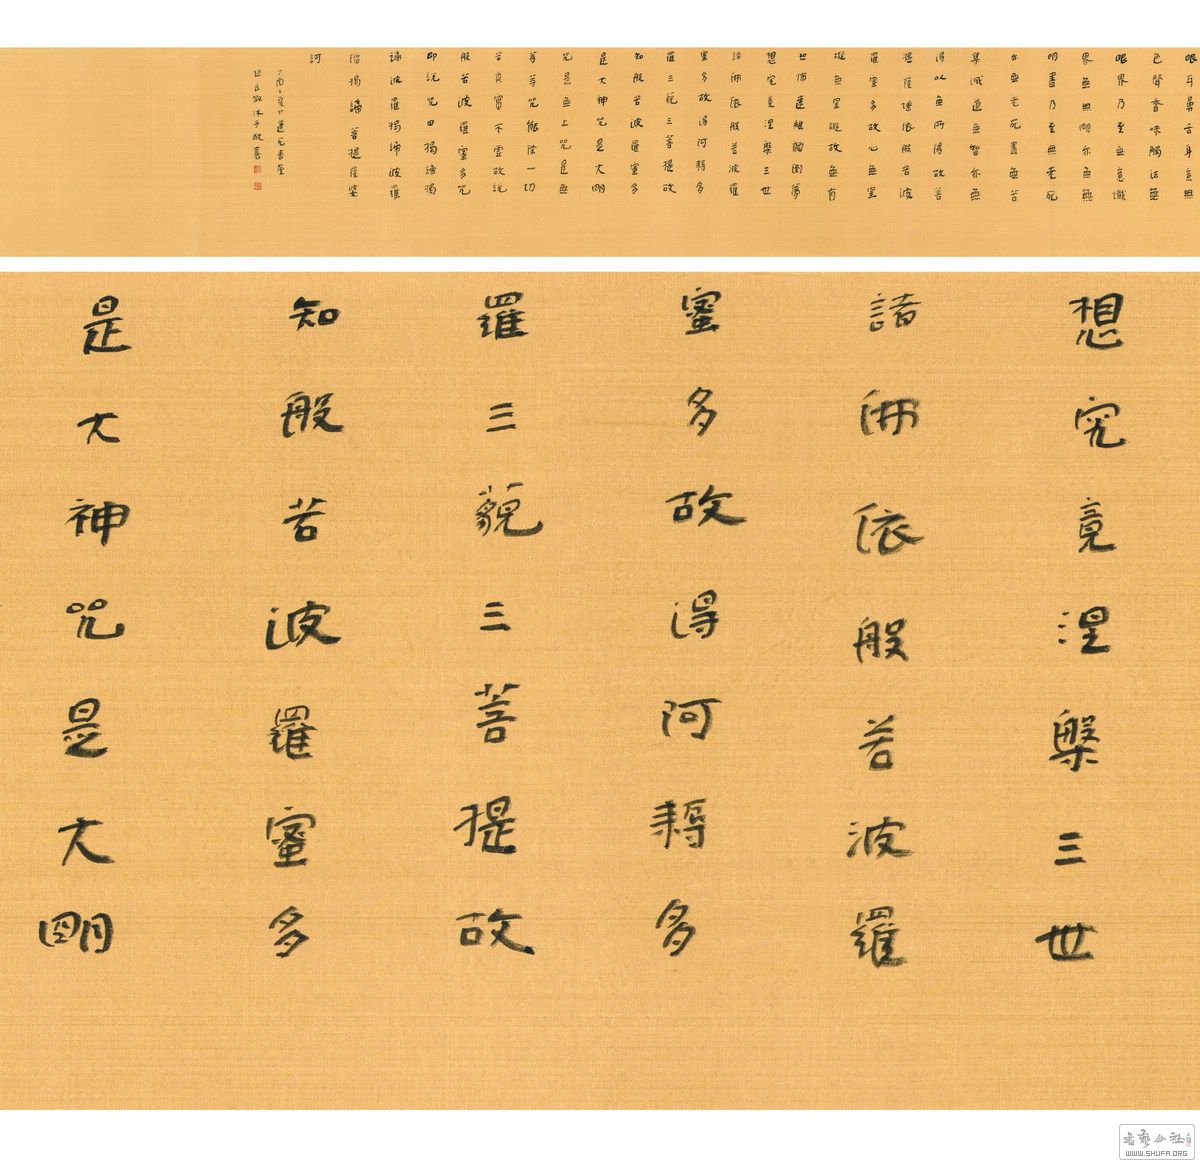 眼耳鼻舌身意無
色聲香味觸法無
眼界乃至無意識
界無無明亦無無
明盡乃至無老死
亦無老死盡無苦
集滅道無智亦無
得以無所得故菩
提薩埵依般若波
羅蜜多故心無罣
礙無罣礙故無有
恐怖遠離顛倒夢
想究竟涅槃三世
諸佛依般若波羅
蜜多故得阿耨多
羅三藐三菩提故
知般若波羅蜜多
是大神咒是大明
咒是無上咒是無
等等咒能除一切
苦真實不虛故說
般若波羅蜜多咒
即說咒曰揭諦揭
諦波羅揭諦波羅
僧揭諦菩提薩婆
訶
丁酉之夏於蓮元書屋
想究竟涅槃三世
諸佛依般若波羅
蜜多故得阿耨多
羅三藐三菩提故
知般若波羅蜜多
是大神咒是大明
WWW.SHUFA.ORG